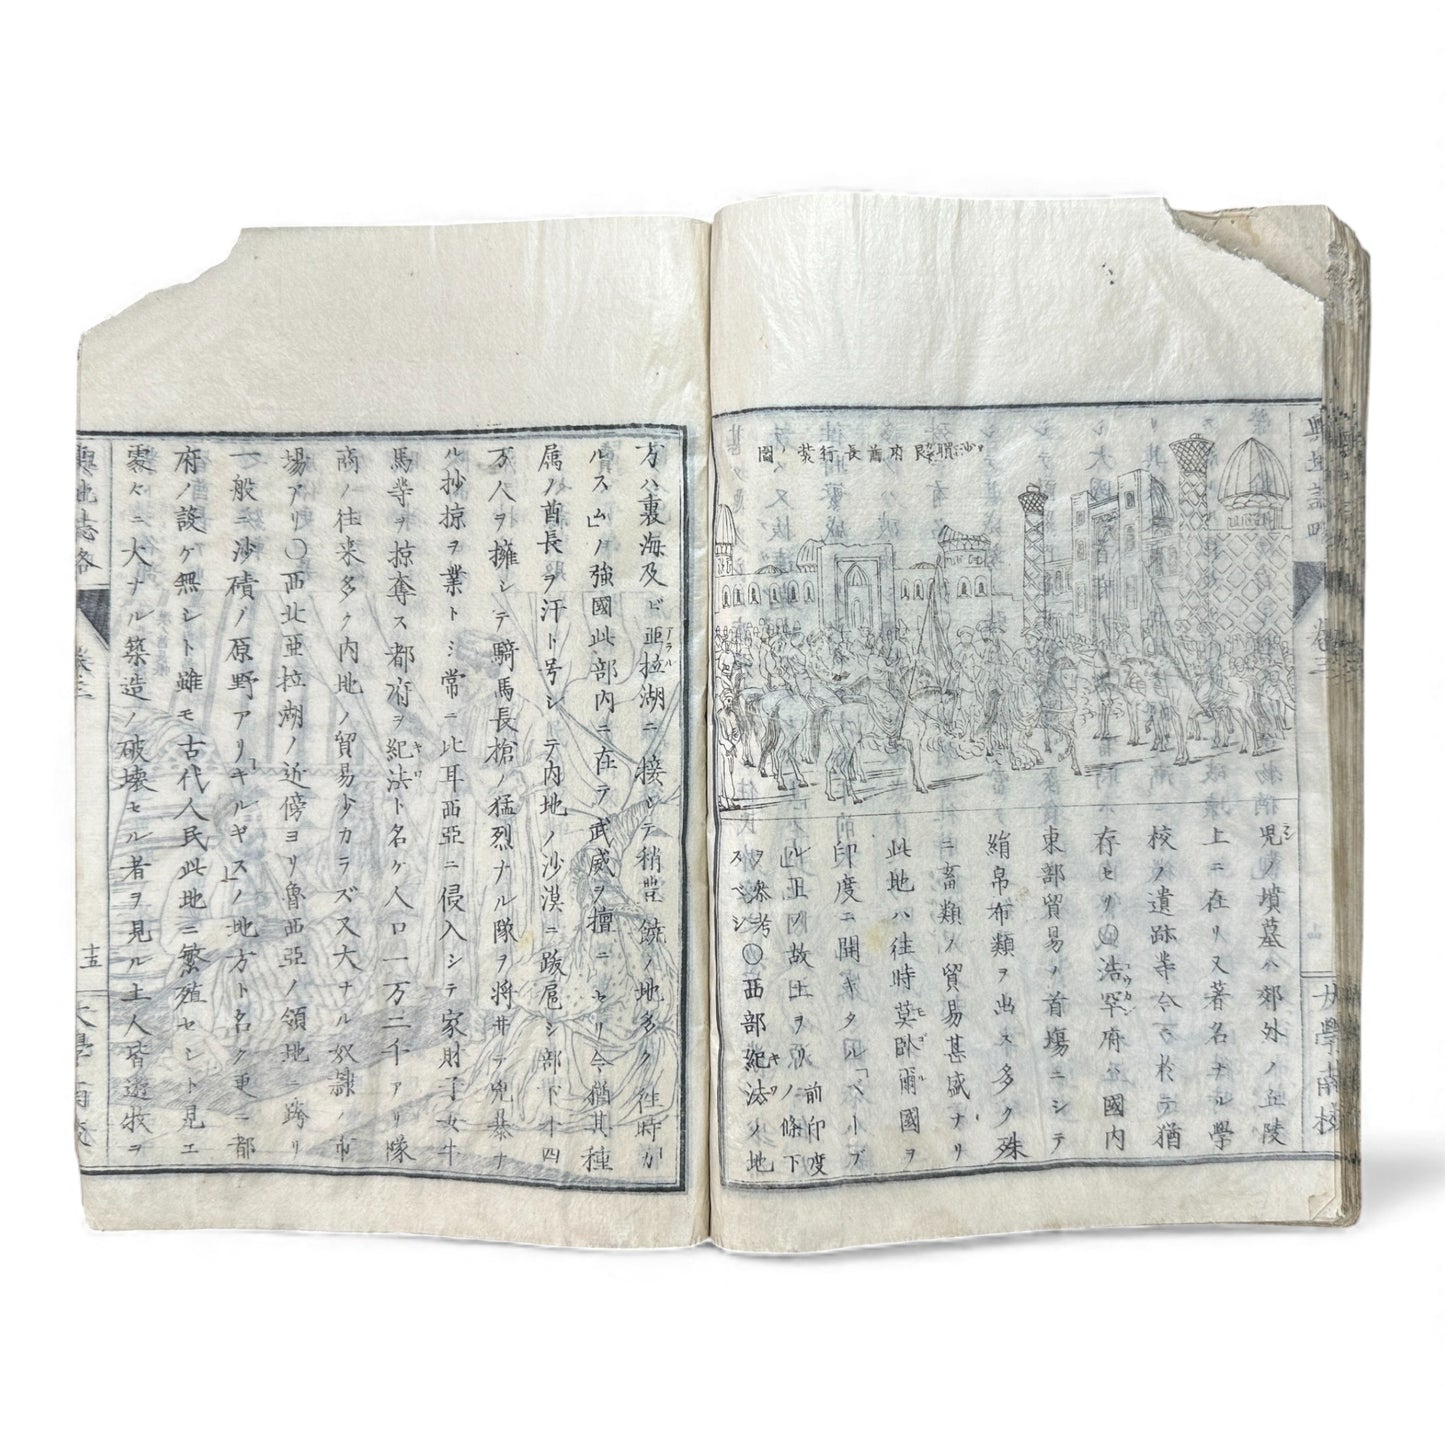 兒ノ墳墓ハ郊外ノ丘陵
上ニ在リ又著名ナル學
校ノ遺跡等今ニ於テ猶
存セリ〇浩罕府ハ國内
東部貿易ノ首塲ニシテ
絹帛布類ヲ出ス多ク殊
ニ畜類ノ貿易甚盛ナリ
此地ハ往時莫臥爾國ヲ
印度ニ開キタル「ベーブ
ル」王ノ故土ヲリ前印度ノ條下
ヲ參考スベシ〇西部紀法ノ地
方ハ裏海及ビ亜拉湖ニ接シテ稍豊饒ノ地多ク往時ガ
ルスム」ノ強國此部内ニ在テ武威ヲ擅ニセリ今猶其種
属ノ酋長ヲ汗ト号シテ内地ノ沙漠ニ跋扈シ部下十四
万人ヲ擁シテ騎馬長槍ノ猛烈ナル隊ヲ將井テ兇暴ナ
ル抄掠ヲ業トシ常ニ比耳西亞ニ侵入シテ家財子女牛
馬等ヲ掠奪ス都府ヲ紀法ト名ケ人口一万二千アリ隊
商ノ往来多ク内地ノ貿易少カラズ又大ナル奴隷ノ市
塲アリ〇西北亜拉湖ノ近傍ヨリ魯西亞ノ領地ニ跨リ
一般ニ沙磧ノ原野アリ「キルギス」ノ地方ト名ク更ニ都
府ノ設ケ無シト雖モ古代人民此地ニ繁殖セシト見エ
處々ニ大ナル築造ノ破壊セル者ヲ見ル土人皆遊牧ヲ
輿地誌略
卷三
十五
大學南校